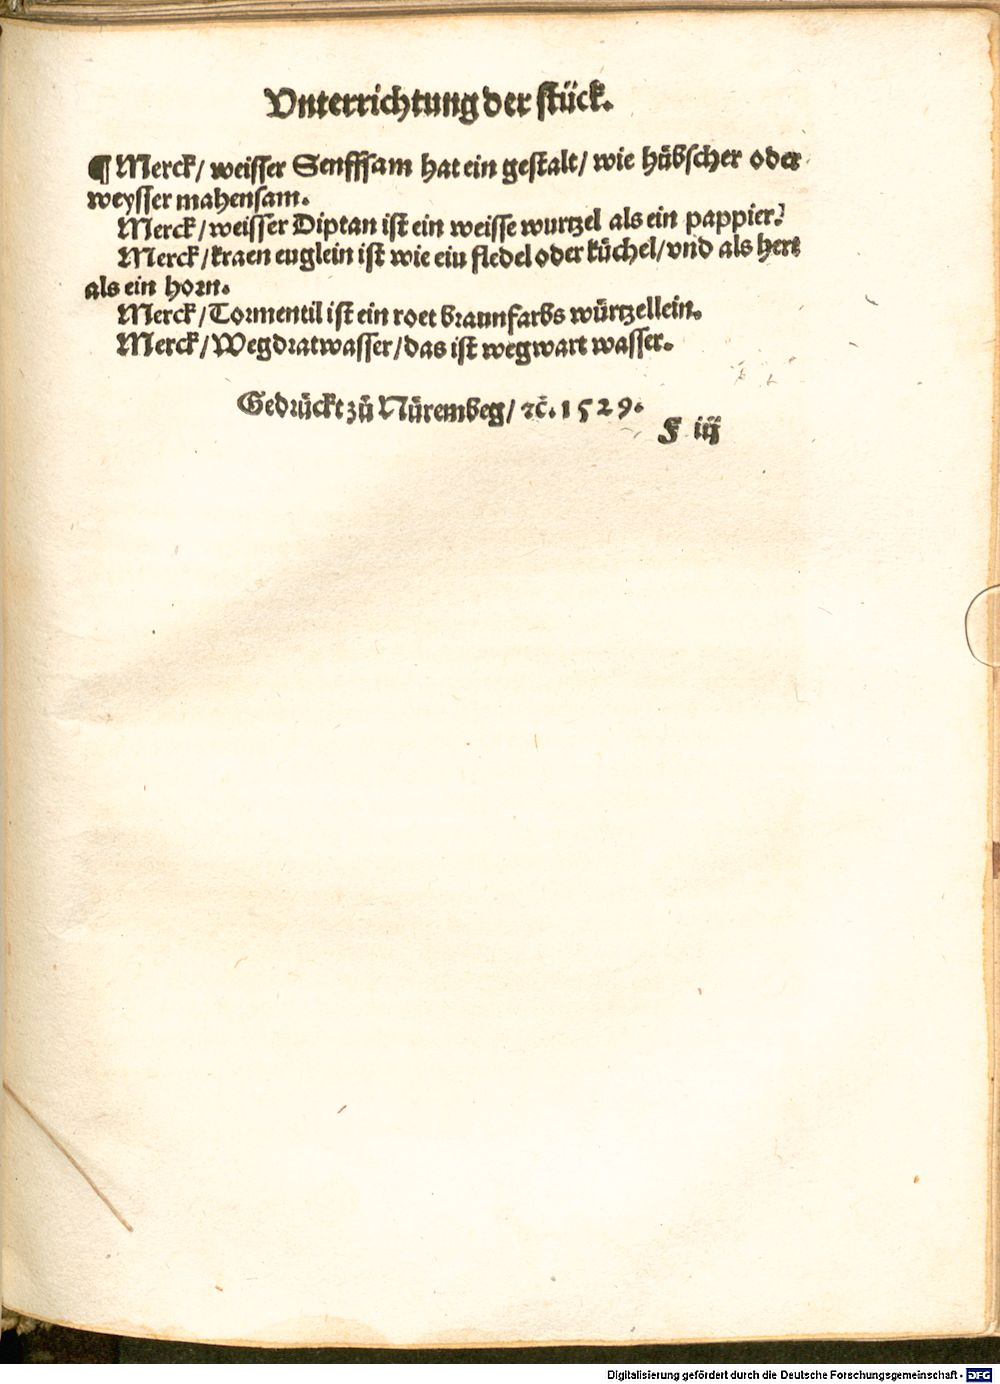 Vnterrichtung der stück.
¶ Merck/ weisser Senffsam hat ein gestalt/ wie hübscher oder
weysser mahensam.
Merck/ weisser Diptan ist ein weisse wurtzel als ein pappier.
Merck/ kraen euglein ist wie ein fledel oder küchel/ vnd als hert
als ein horn.
Merck/ Tormentil ist ein roet braunfarbs würtzellein.
Merck/ Wegdratwasser/ das ist wegwart wasser.
Gedrückt zů Nürembeg/ ꝛc̄. 1529.
F iij
Digitalisierung gefördert durch die Deutsche Forschungsgemeinschaft - DFG